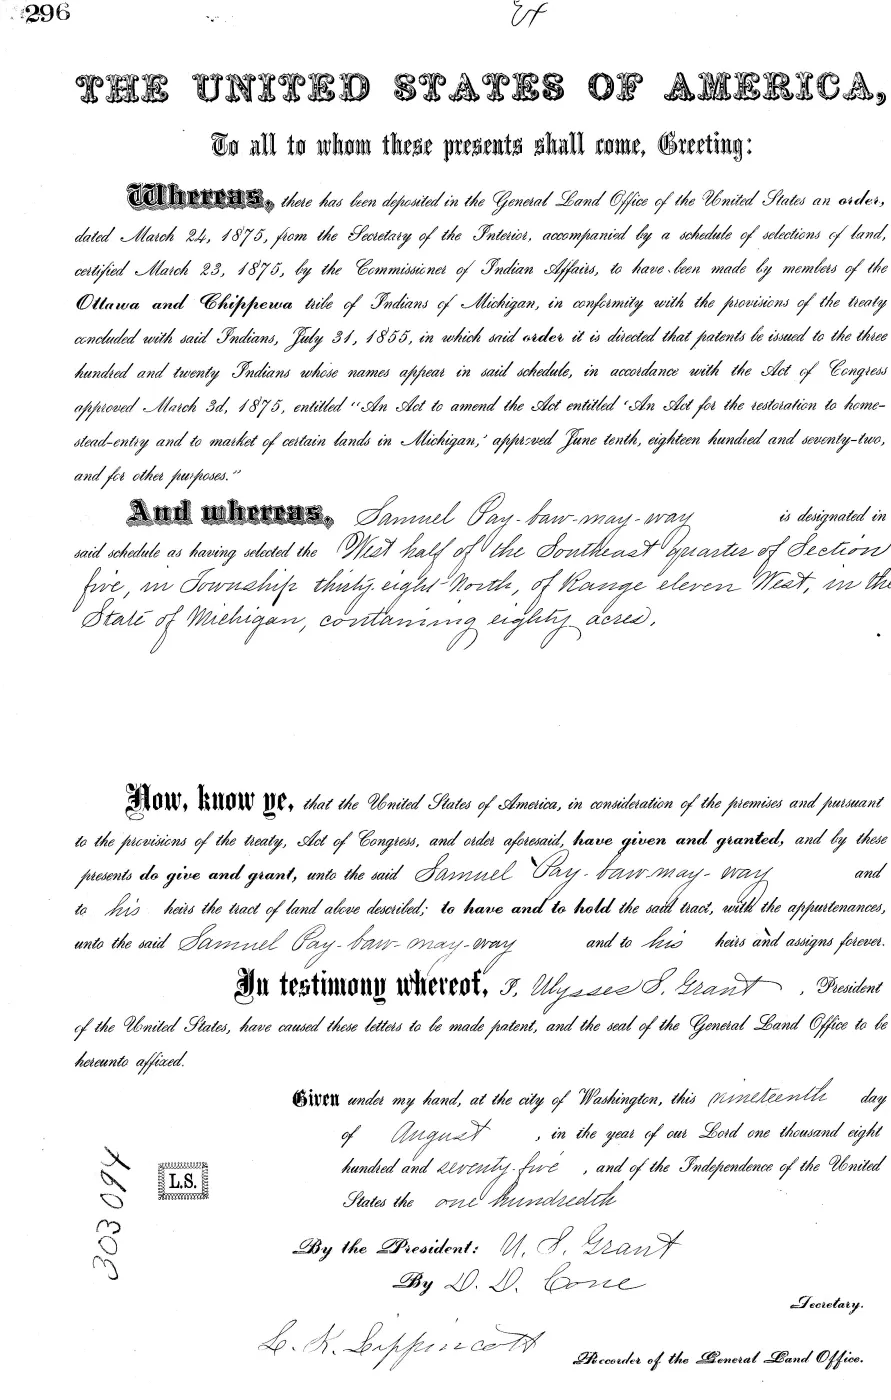 296
THE UNITED STATES OF AMERICA,
To all to whom these presents shall come, Greeting:
Whereas, there has been deposited in the General Land Office of the United States an order,
dated March 24, 1875, from the Secretary of the Interior, accompanied by a schedule of selections of land,
certified March 23, 1875, by the Commissioner of Indian Affairs, to have been made by members of the
Ottawa and Chippewa tribe of Indians of Michigan, in conformity with the provisions of the treaty
concluded with said Indians, July 31, 1855, in which said order it is directed that patents be issued to the three
hundred and twenty Indians whose names appear in said schedule, in accordance with the Act of Congress
approved March 3d, 1875, entitled "An Act to amend the Act entitled 'An Act for the restoration to home-
stead-entry and to market of certain lands in Michigan,' approved June tenth, eighteen hundred and seventy-two,
and for other purposes."
And whereas, Samuel Pay-baw-may-way is designated in
said schedule as having selected the West half of the Southeast quarter of Section
five, in Township thirty-eight North, of Range eleven West, in the
State of Michigan, containing eighty acres.
Now, know ye, that the United States of America, in consideration of the premises and pursuant
to the provisions of the treaty, Act of Congress, and order aforesaid, have given and granted, and by these
presents do give and grant, unto the said Samuel Pay-baw-may-way and
to his heirs the tract of land above described; to have and to hold the said tract, with the appurtenances,
unto the said Samuel Pay-baw-may-way and to his heirs and assigns forever.
In testimony whereof, I, Ulysses S. Grant, President
of the United States, have caused these letters to be made patent, and the seal of the General Land Office to be
hereunto affixed.
Given under my hand, at the city of Washington, this nineteenth day
of August, in the year of our Lord one thousand eight
hundred and seventy-five, and of the Independence of the United
States the one hundredth
303094
L.S.
By the President: U. S. Grant
By D. D. Cone
Secretary.
L. K. Lippincott
Recorder of the General Land Office.